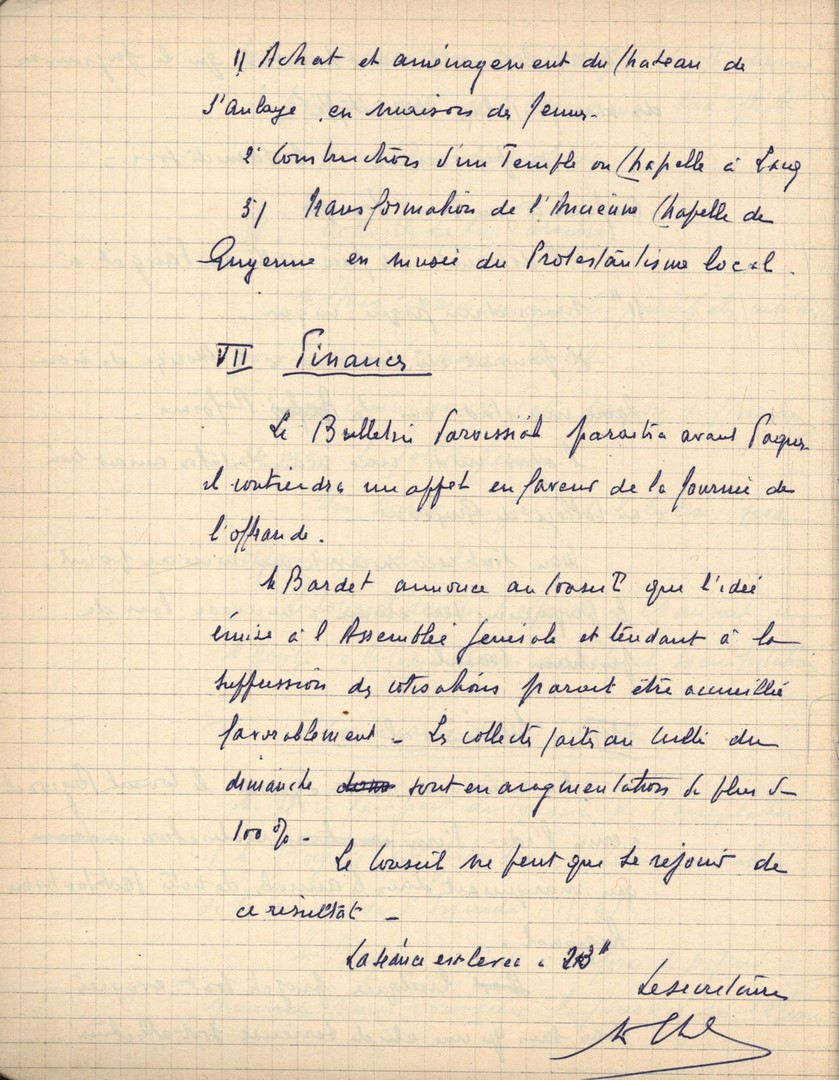 1) Achat et aménagement du Chateau de
L'aulaye en maisons de Jeunes.
2° Construction d'un Temple ou Chapelle à
3) Transformation de l'Ancienne Chapelle de
Guyenne en musée du Protestantisme local.
VII Finances
Le Bulletin Paroissial paraitra avant Paques
il contiendra un appel en faveur de la Journée de
l'offrande.
M Bardet annonce au Conseil que l'idée
émise à l'Assemblée Générale et tendant à la
suppression des cotisations parait être accueillie
favorablement - Les collectes faites au Culte du
dimanche sont en augmentation de plus de
100% -
Le Conseil ne peut que se réjouir de
ce résultat -
La séance est levée à 23H
Le secrétaire